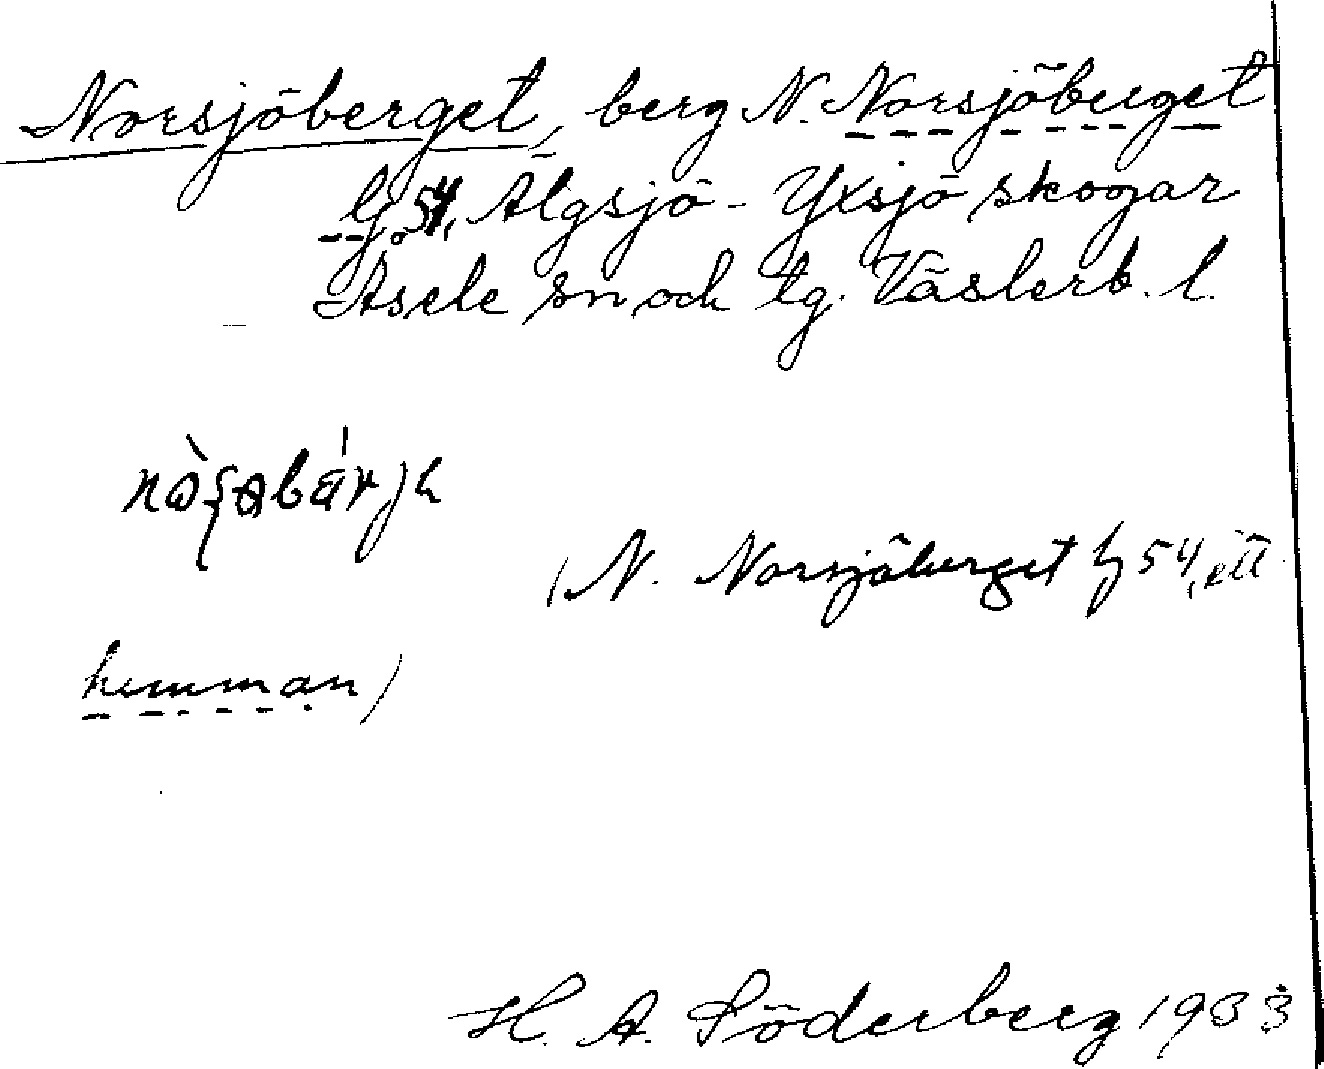 Norsjöberget, berg N. Norsjöberget
lg 54, Älgsjö - Yxsjö skogar
Åsele sn och lg. Västerb. l.
(N. Norsjöberget lg 54, ett
hemman)
H. A. Söderberg 1933